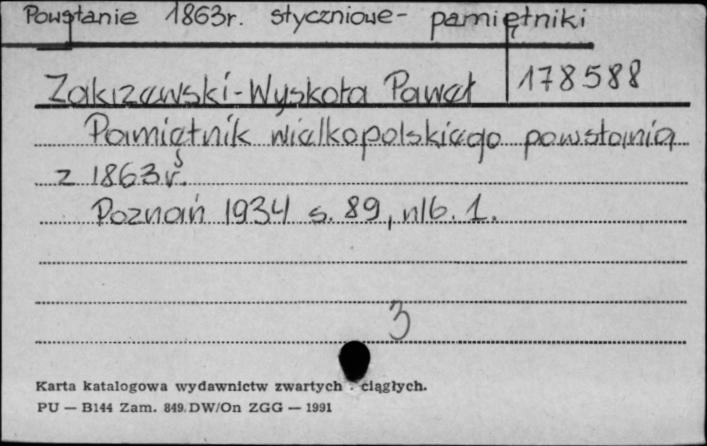 Powstanie 1863r. styczniowe - pamiętniki
Zakrzewski-Wyskota Paweł 178588
Pamiętnik wielkopolskiego powstania
z 1863 r.
Poznań 1934 s. 89, nlb. 1.
3
Karta katalogowa wydawnictw zwartych i ciągłych.
PU — B144 Zam. 849. DW/On ZGG — 1991